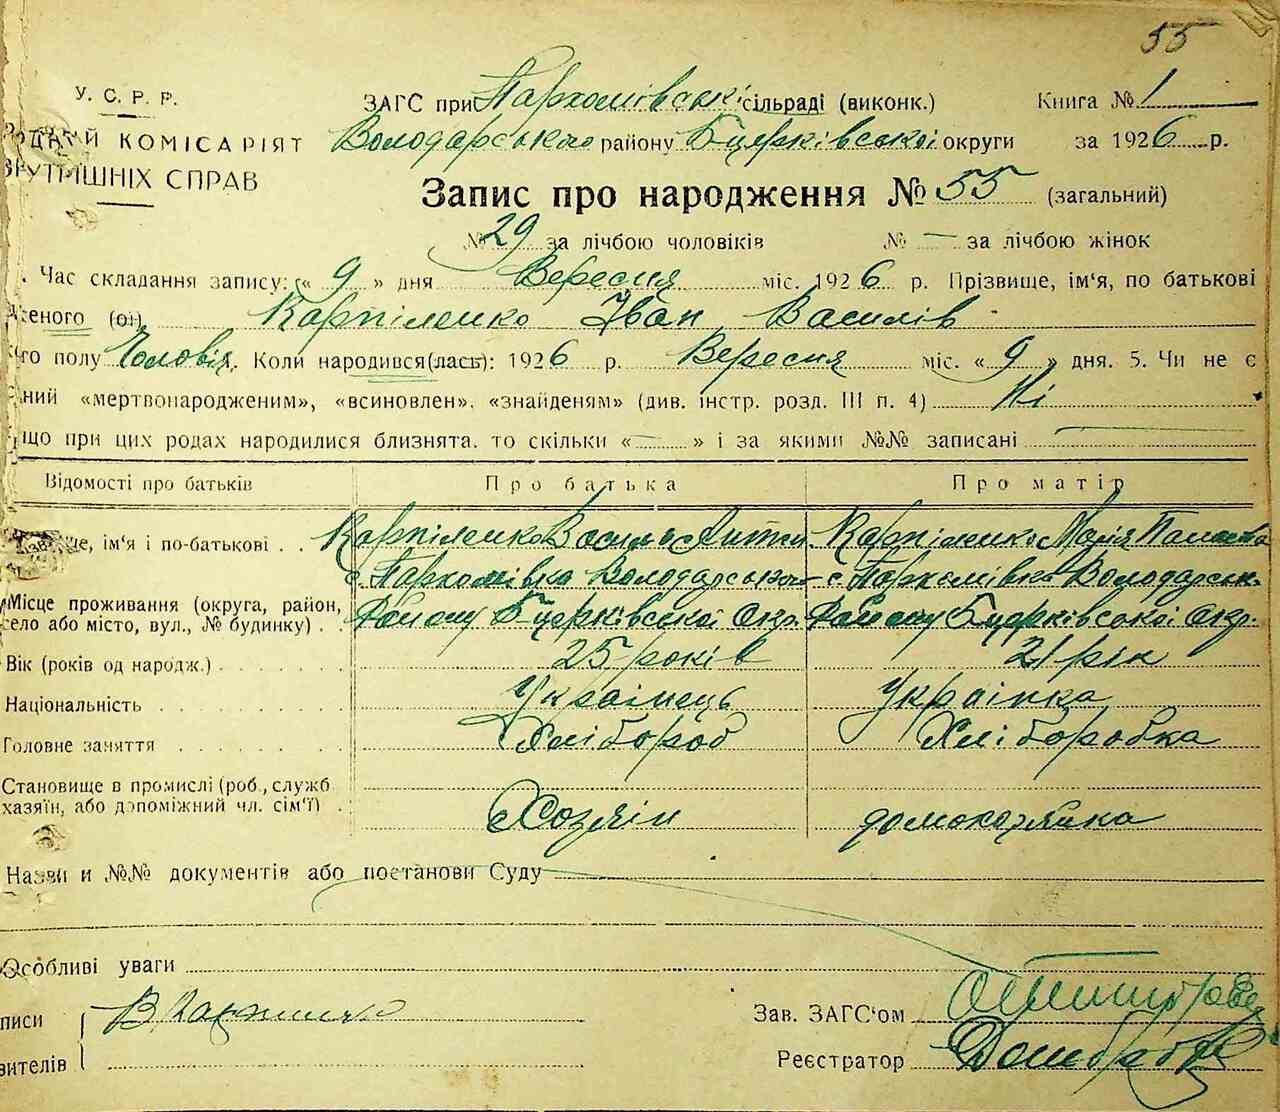 55
У. С. Р. Р.
ЗАГС при Пархомівські сільраді (виконк.) Книга № 1
КОМІСАРІЯТ Володарського району Б-церківської округи за 1926 р.
СПРАВ
Запис про народження № 55 (загальний)
№ 29 за лічбою чоловіків № — за лічбою жінок
Час складання запису: « 9 » дня Вересня міс. 1926 р. Прізвище, ім'я, по батькові
женого (ої) Карпіленко Іван Василів
полу Чоловіч. Коли народився(лась): 1926 р. Вересня міс. « 9 » дня. 5. Чи не є
ний «мертвонародженим», «всиновлен», «знайденям» (див. інстр. розд. III п. 4) Ні
що при цих родах народилися близнята, то скільки « — » і за якими №№ записані —
Відомості про батьків Про батька Про матір
ще, ім'я і по-батькові . . Карпіленко Василь Карпіленко Марія
с. Пархомівка Володарського с. Пархомівка Володарськ.
Місце проживання (округа, район,
село або місто, вул., № будинку) . . Району Б-церківської Окр. Району Б-церківської Окр.
Вік (років од народж.) 25 років 21 рік
Національність Українець Українка
Головне заняття Хлібороб Хліборобка
Становище в промислі (роб., служб
хазяїн, або допоміжний чл. сім'ї) . Хозяін домохозяйка
Назви и №№ документів або постанови Суду
Особливі уваги
писи В Карпиленко Зав. ЗАГС'ом
вителів Реєстратор